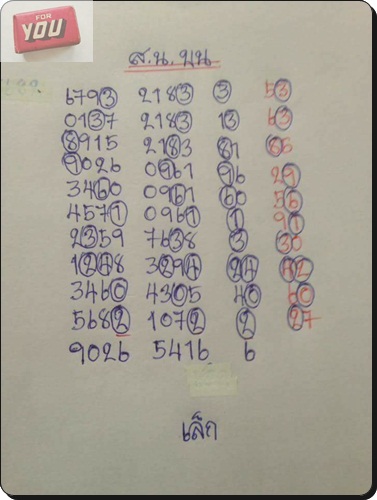 FOR
YOU
ส.น. บน
6793 2183 3 53
0137 2183 13 63
8915 2183 81 86
9026 0961 96 29
3460 0961 60 56
4571 0961 1 91
2359 7638 3 30
1248 3294 24 42
3460 4305 40 60
5682 1072 2 27
9026 5416 6
เล็ก